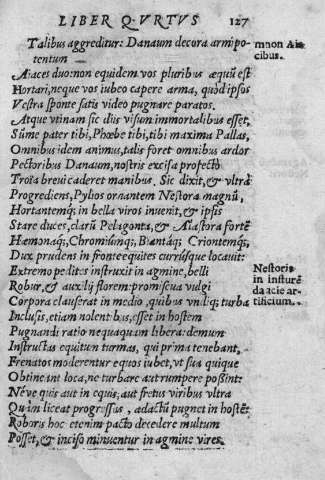 LIBER QVRTVS 127
Talibus aggreditur: Danaum decora armipo-
tentum
mnon Aia
cibus.
Aiaces duo: non equidem vos pluribus æquũ est
Hortari, neque vos iubeo capere arma, quod ipsos
Vestra sponte satis video pugnare paratos.
Atque vtinam sic diis visum immortalibus esset,
Sũme pater tibi, Phœbe tibi, tibi maxima Pallas,
Omnibus idem animus, talis foret omnibus ardor
Pectoribus Danaum, nostris excisa profecto
Troia breui caderet manibus. Sic dixit, & vltra
Progrediens, Pylios ornantem Nestora magnũ,
Hortantemq; in bella viros inuenit, & ipsis
Stare duces, clarũ Pelagonta, & Alastora fortẽ
Hæmonaq;, Chromiũmq;, Biantáq; Criontemq;,
Dux prudens in fronte equites currusque locauit:
Extremo pedites instruxit in agmine, belli
Robur, & auxilij florem: promiscua vulgi
Corpora clauserat in medio, quibus vndiq; turba
Nestoris
in instruẽ
da acie ar
tificium.
Inclusis, etiam nolentibus, esset in hostem
Pugnandi ratio nequaquam libera: demum
Instructas equitum turmas, qui prima tenebant,
Frenatos moderentur equos iubet, vt sua quique
Obtineant loca, ne turbare aut rumpere possint:
Néve quis aut in equis, aut fretus viribus vltra
Quàm liceat progressus, adacti pugnet in hostẽ:
Roboris hoc etenim pacto decedere multum
Posset, & inciso minuentur in agmine vires.